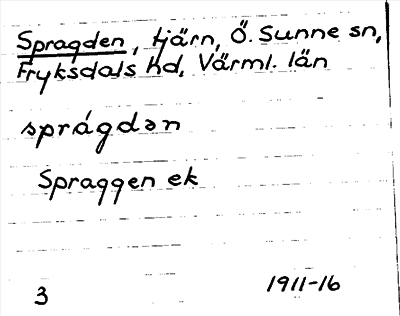 Spragden, tjärn, Ö. Sunne sn,
Fryksdals hd, Värml. län
sprágdən
Spraggen ek
3 1911-16